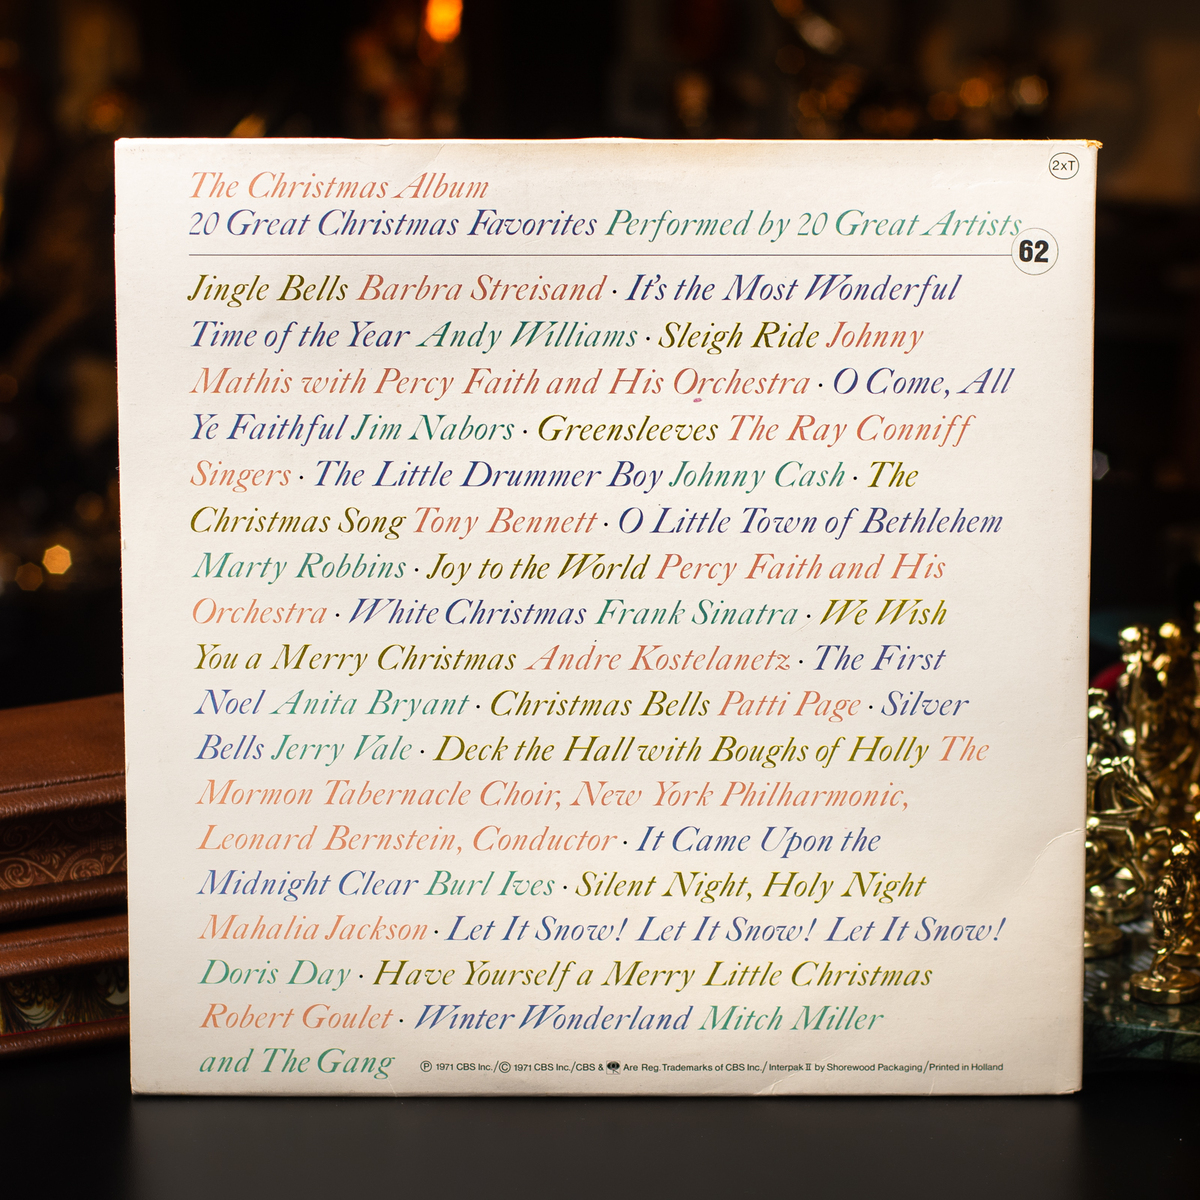 2xT
The Christmas Album
20 Great Christmas Favorites Performed by 20 Great Artists
62
Jingle Bells Barbra Streisand · It's the Most Wonderful
Time of the Year Andy Williams · Sleigh Ride Johnny
Mathis with Percy Faith and His Orchestra · O Come, All
Ye Faithful Jim Nabors · Greensleeves The Ray Conniff
Singers · The Little Drummer Boy Johnny Cash · The
Christmas Song Tony Bennett · O Little Town of Bethlehem
Marty Robbins · Joy to the World Percy Faith and His
Orchestra · White Christmas Frank Sinatra · We Wish
You a Merry Christmas Andre Kostelanetz · The First
Noel Anita Bryant · Christmas Bells Patti Page · Silver
Bells Jerry Vale · Deck the Hall with Boughs of Holly The
Mormon Tabernacle Choir, New York Philharmonic,
Leonard Bernstein, Conductor · It Came Upon the
Midnight Clear Burl Ives · Silent Night, Holy Night
Mahalia Jackson · Let It Snow! Let It Snow! Let It Snow!
Doris Day · Have Yourself a Merry Little Christmas
Robert Goulet · Winter Wonderland Mitch Miller
and The Gang
℗ 1971 CBS Inc./© 1971 CBS Inc./CBS & Are Reg. Trademarks of CBS Inc./Interpak II by Shorewood Packaging/Printed in Holland